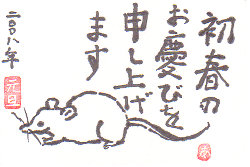 初春の
お慶びを
申し上げ
ます
二〇〇八年
元旦